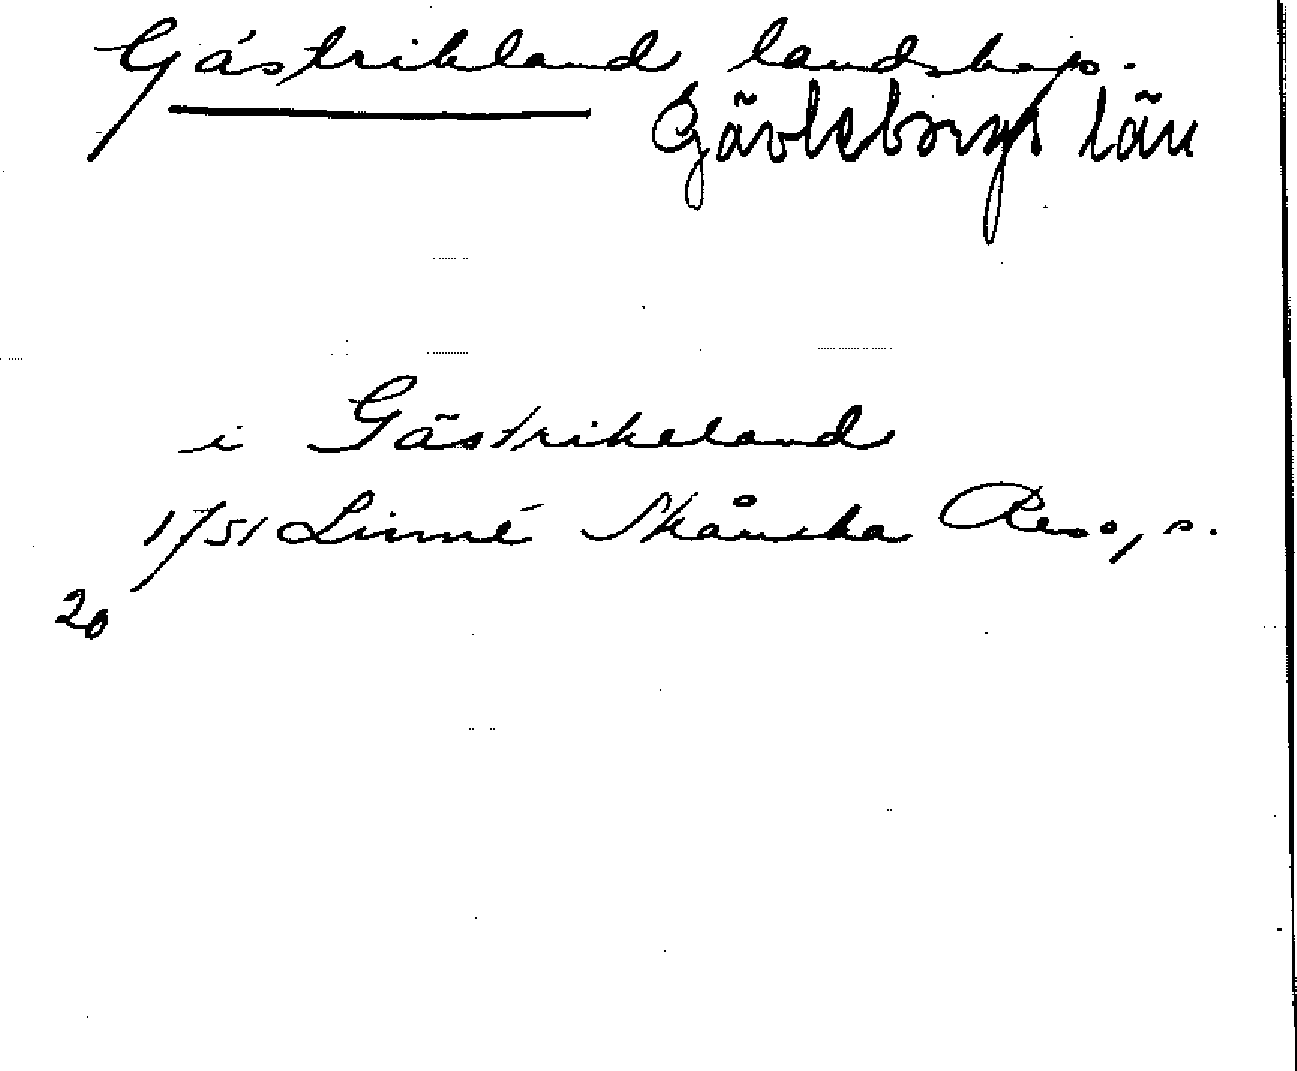 Gästrikland landskap.
Gävleborgs län
i Gästrikeland
1751 Linné Skånska Resa, s.
20